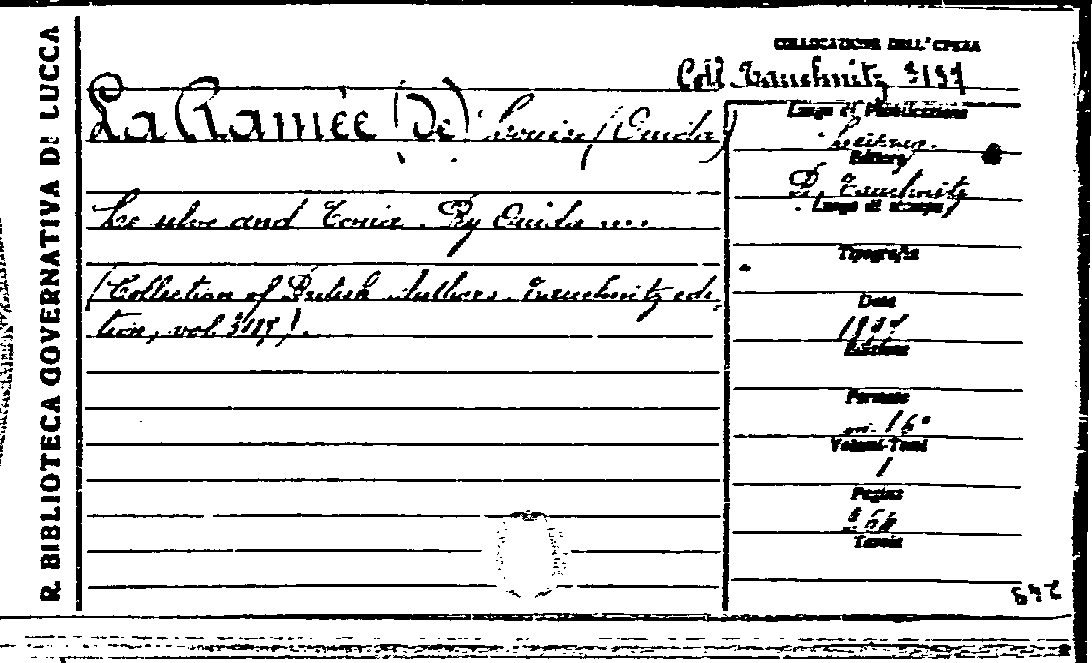 R. BIBLIOTECA GOVERNATIVA DI LUCCA
COLLOCAZIONE DELL'OPERA
Coll. Tauchnitz 3197
La Ramée (De) Louisa (Ouida)
Le selve and Tonia. By Ouida ....
(Collection of British Authors. Tauchnitz edi-
tion, vol. 3197).
Luogo di Pubblicazione
Editore
B. Tauchnitz
Luogo di stampa
Tipografia
Data
1897
Edizione
Formato
in-16°
Volumi-Tomi
1
Pagine
Tavole